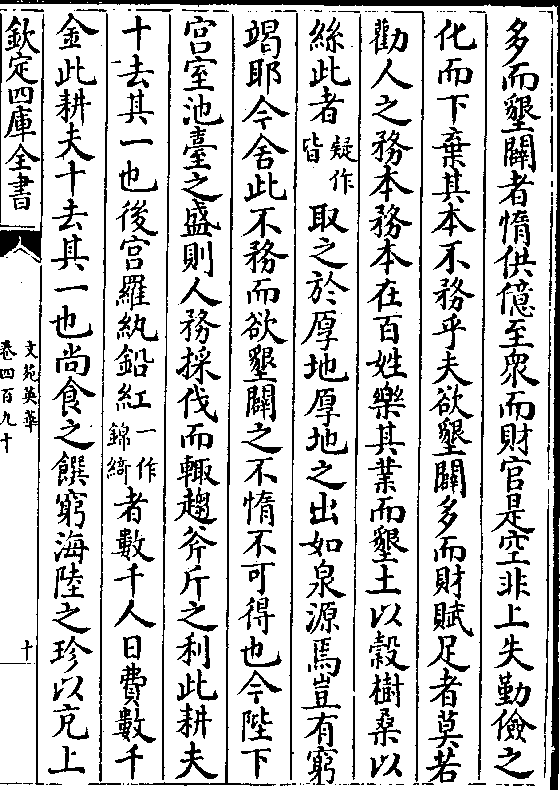 多而墾闢者惰供億至衆而財官是空非上失勤儉之
化而下棄其本不務乎夫欲墾闢多而財賦足者莫若
勸人之務本務本在百姓樂其業而墾土以穀樹桑以
絲此者疑作皆取之於厚地厚地之出如泉源焉豈有窮
竭耶今舍此不務而欲墾闢之不惰不可得也今陛下
宫室池臺之盛則人務採伐而輙趨斧斤之利此耕夫
十去其一也後宫羅紈鉛紅一作錦綺者數千人日費數千
金此耕夫十去其一也尚食之饌窮海陸之珍以充上
欽定四庫全書
文苑英華
卷四百九十
十